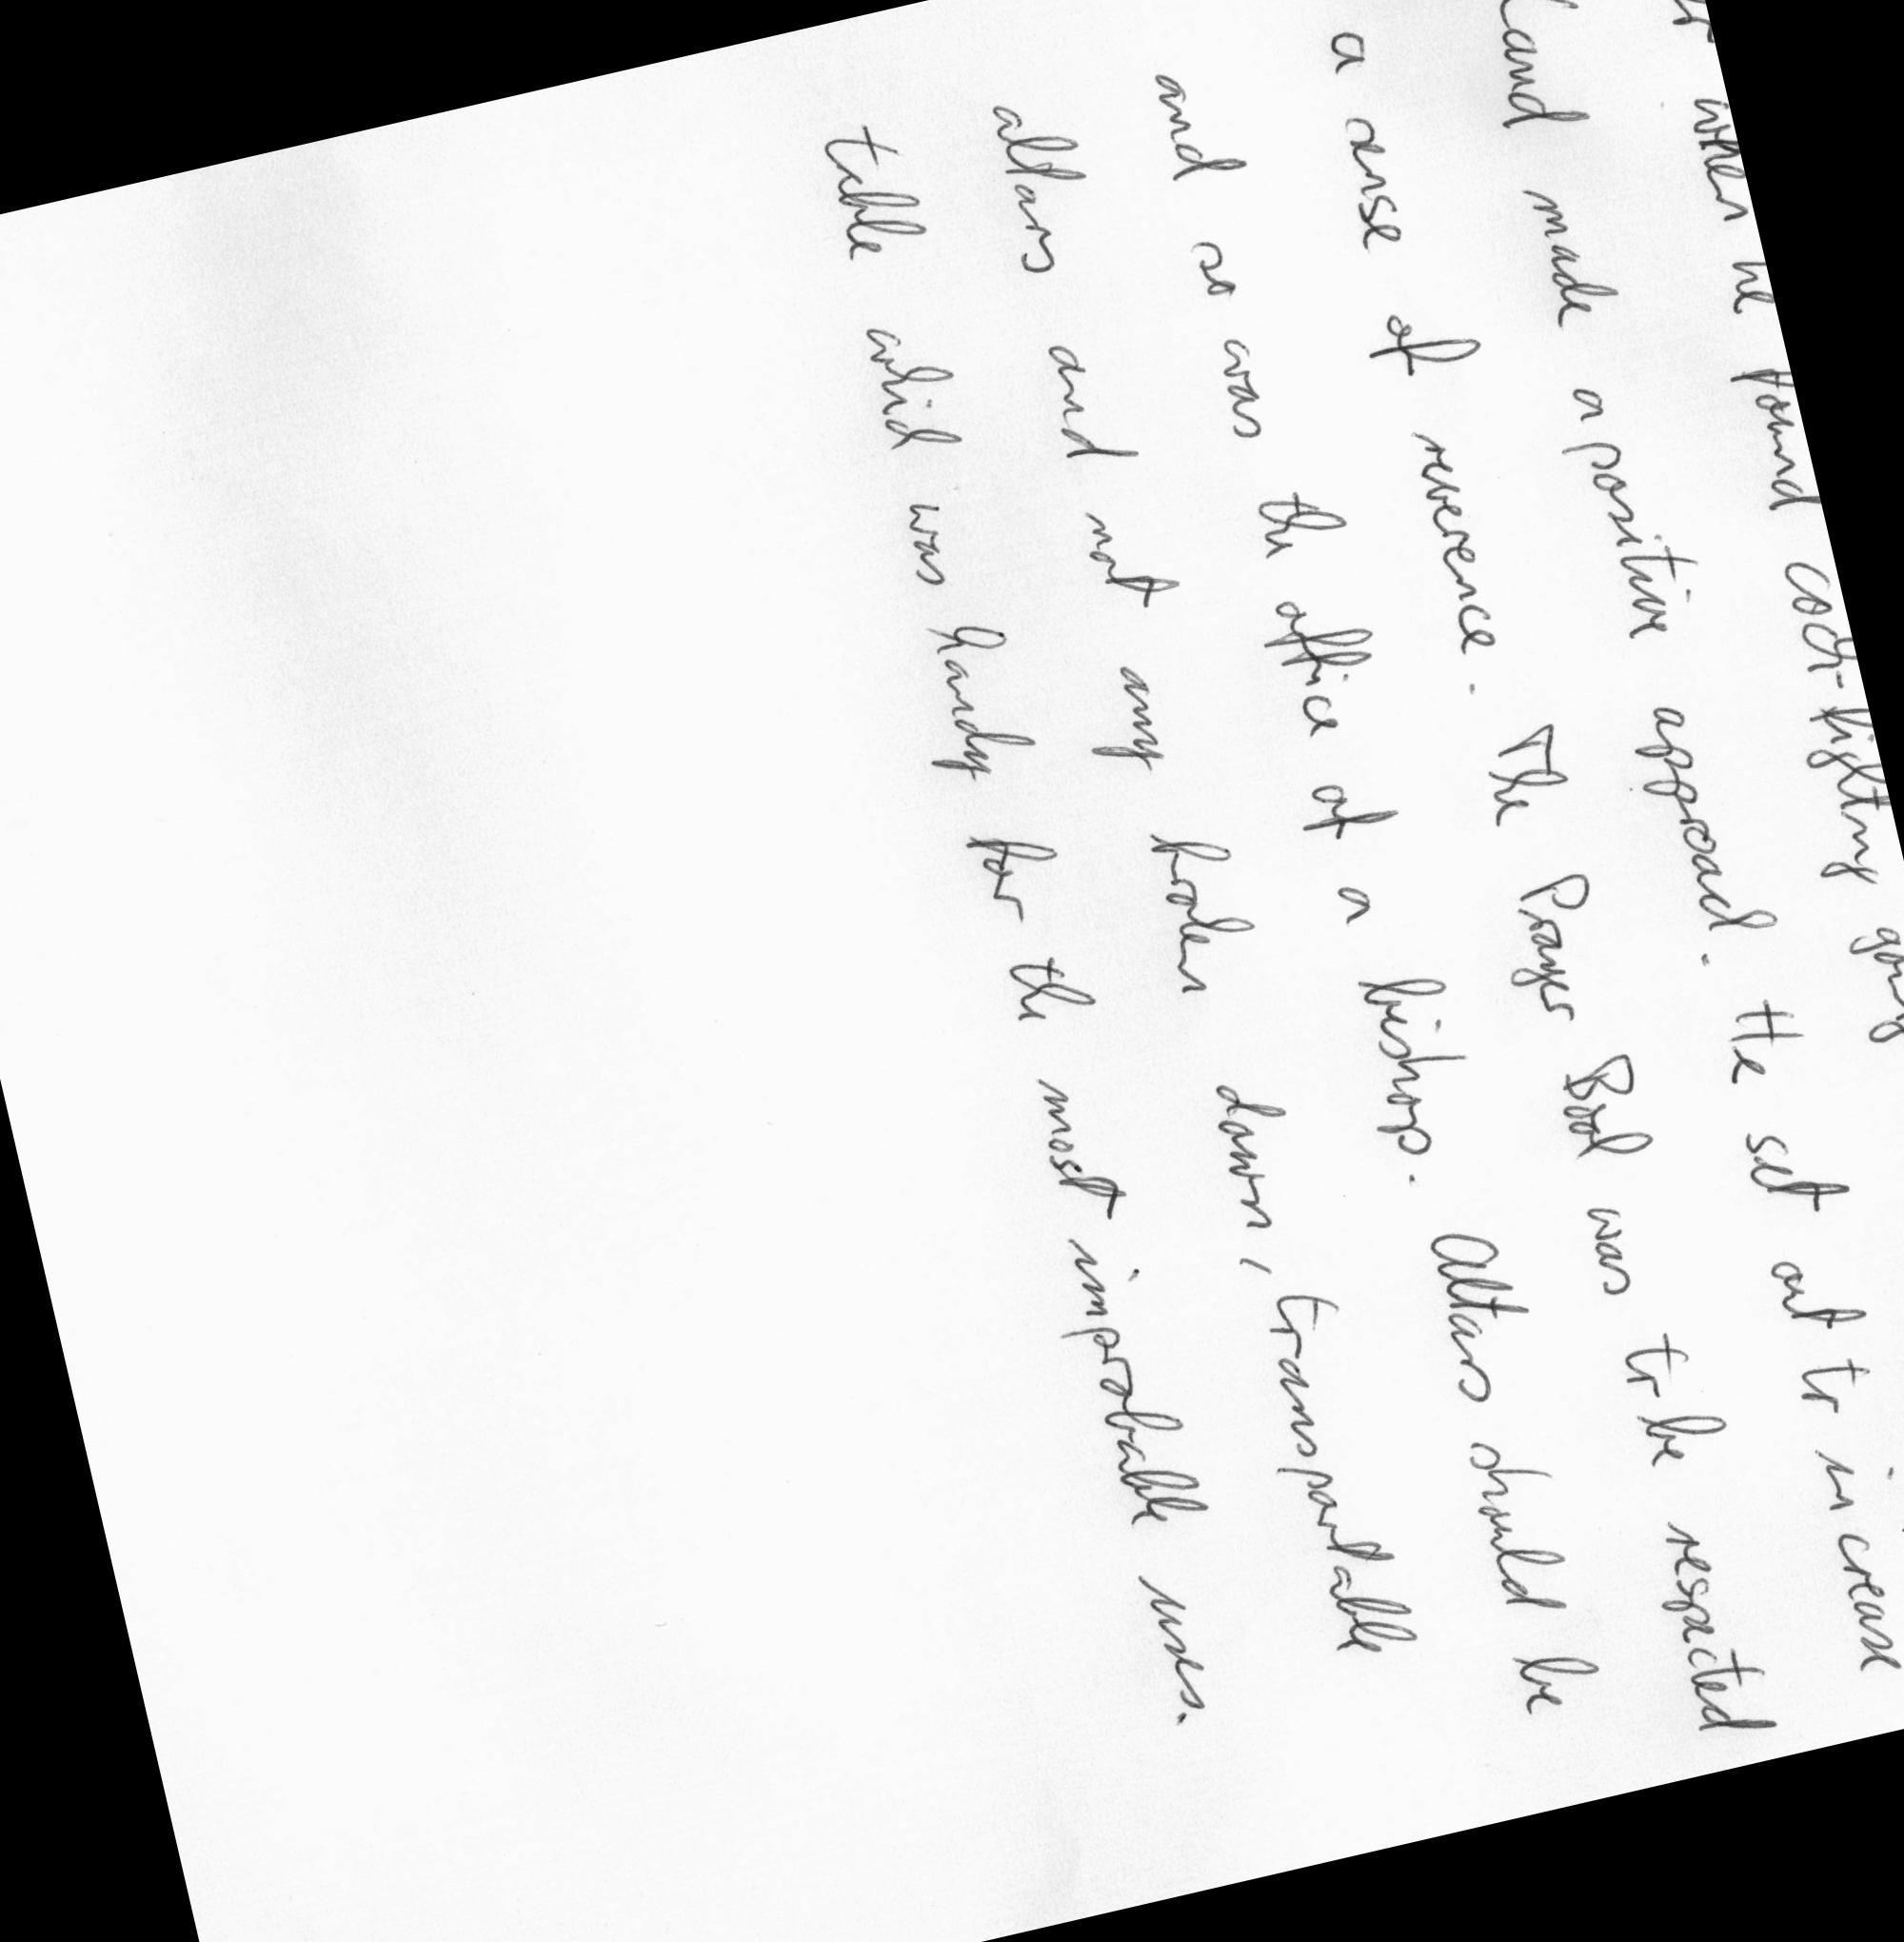 when he found cock-fighting going
Laud made a positive approach. He set out to increase
a sense of reverence. The Prayer Book was to be respected
and so was the office of a bishop. Altars should be
altars and not any broken down, transportable
table which was handy for the most improbable uses.